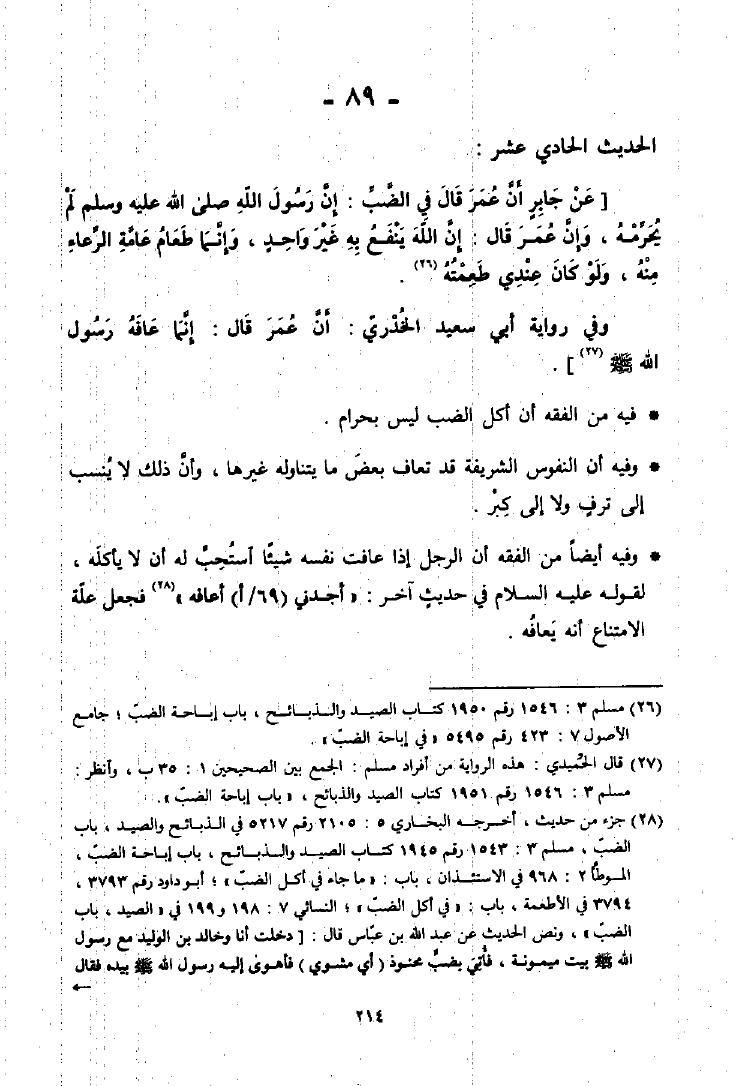 - ٨٩ -
الحديث الحادي عشر :
[ عَنْ جَابِرٍ أَنَّ عُمَرَ قَالَ فِي الضَّبِّ : إِنَّ رَسُولَ اللّهِ صلى الله عليه وسلم لَمْ
يُحَرِّمْهُ ، وَإِنَّ عُمَرَ قَال : إِنَّ اللَّهَ يَنْفَعُ بِهِ غَيْرَ وَاحِدٍ ، وَإِنَّمَا طَعَامُ عَامَّةِ الرِّعَاءِ
مِنْهُ ، وَلَوْ كَانَ عِنْدِي طَعِمْتُهُ (٢٦) .
وفي رواية أبي سعيد الخُدْريّ : أَنَّ عُمَرَ قَال : إِنَّمَا عَافَهُ رَسُول
الله ﷺ (٢٧) ] .
* فيه من الفقه أن أكل الضب ليس بحرام .
* وفيه أن النفوس الشريفة قد تعاف بعضَ ما يتناوله غيرها ، وأنَّ ذلك لا يُنسب
إلى ترفٍ ولا إلى كِبْر .
* وفيه أيضاً من الفقه أن الرجل إذا عافت نفسه شيئًا أستُحِبَّ له أن لا يأكلَه ،
لقوله عليه السلام في حديثٍ آخر : « أجدني (٦٩/ أ) أعافه »(٢٨) فجعل علّة
الامتناع أنه يَعافُه .
(٢٦) مسلم ٣ : ١٥٤٦ رقم ١٩٥٠ كتاب الصيد والذبائح ، باب إباحة الضبّ ؛ جامع
الأصول ٧ : ٤٢٣ رقم ٥٤٩٥ « في إباحة الضبّ » .
(٢٧) قال الحُميدي : هذه الرواية من أفراد مسلم : الجمع بين الصحيحين ١ : ٣٥ ب ، وأنظر :
مسلم ٣ : ١٥٤٦ رقم ١٩٥١ كتاب الصيد والذبائح ، « باب إباحة الضبّ » .
(٢٨) جزء من حديث ، أخرجه البخاري ٥ : ٢١٠٥ رقم ٥٢١٧ في الذبائح والصيد ، باب
الضبّ ، مسلم ٣ : ١٥٤٣ رقم ١٩٤٥ كتاب الصيد والذبائح ، باب إباحة الضبّ ،
الموطأ ٢ : ٩٦٨ في الاستئذان ، باب : « ما جاء في أكل الضبّ » ؛ أبو داود رقم ٣٧٩٣ ،
٣٧٩٤ في الأطعمة ، باب : « في أكل الضبّ » ؛ النسائي ٧ : ١٩٨ و ١٩٩ في « الصيد ، باب
الضبّ » ، ونص الحديث عن عبد الله بن عبّاس قال : [ دخلت أنا وخالد بن الوليد مع رسول
الله ﷺ بيت ميمونة ، فأُتِيَ بضبٍّ محنوذ ( أي مشوي ) فأهوى إليه رسول الله ﷺ بيده فقال
←
٢١٤